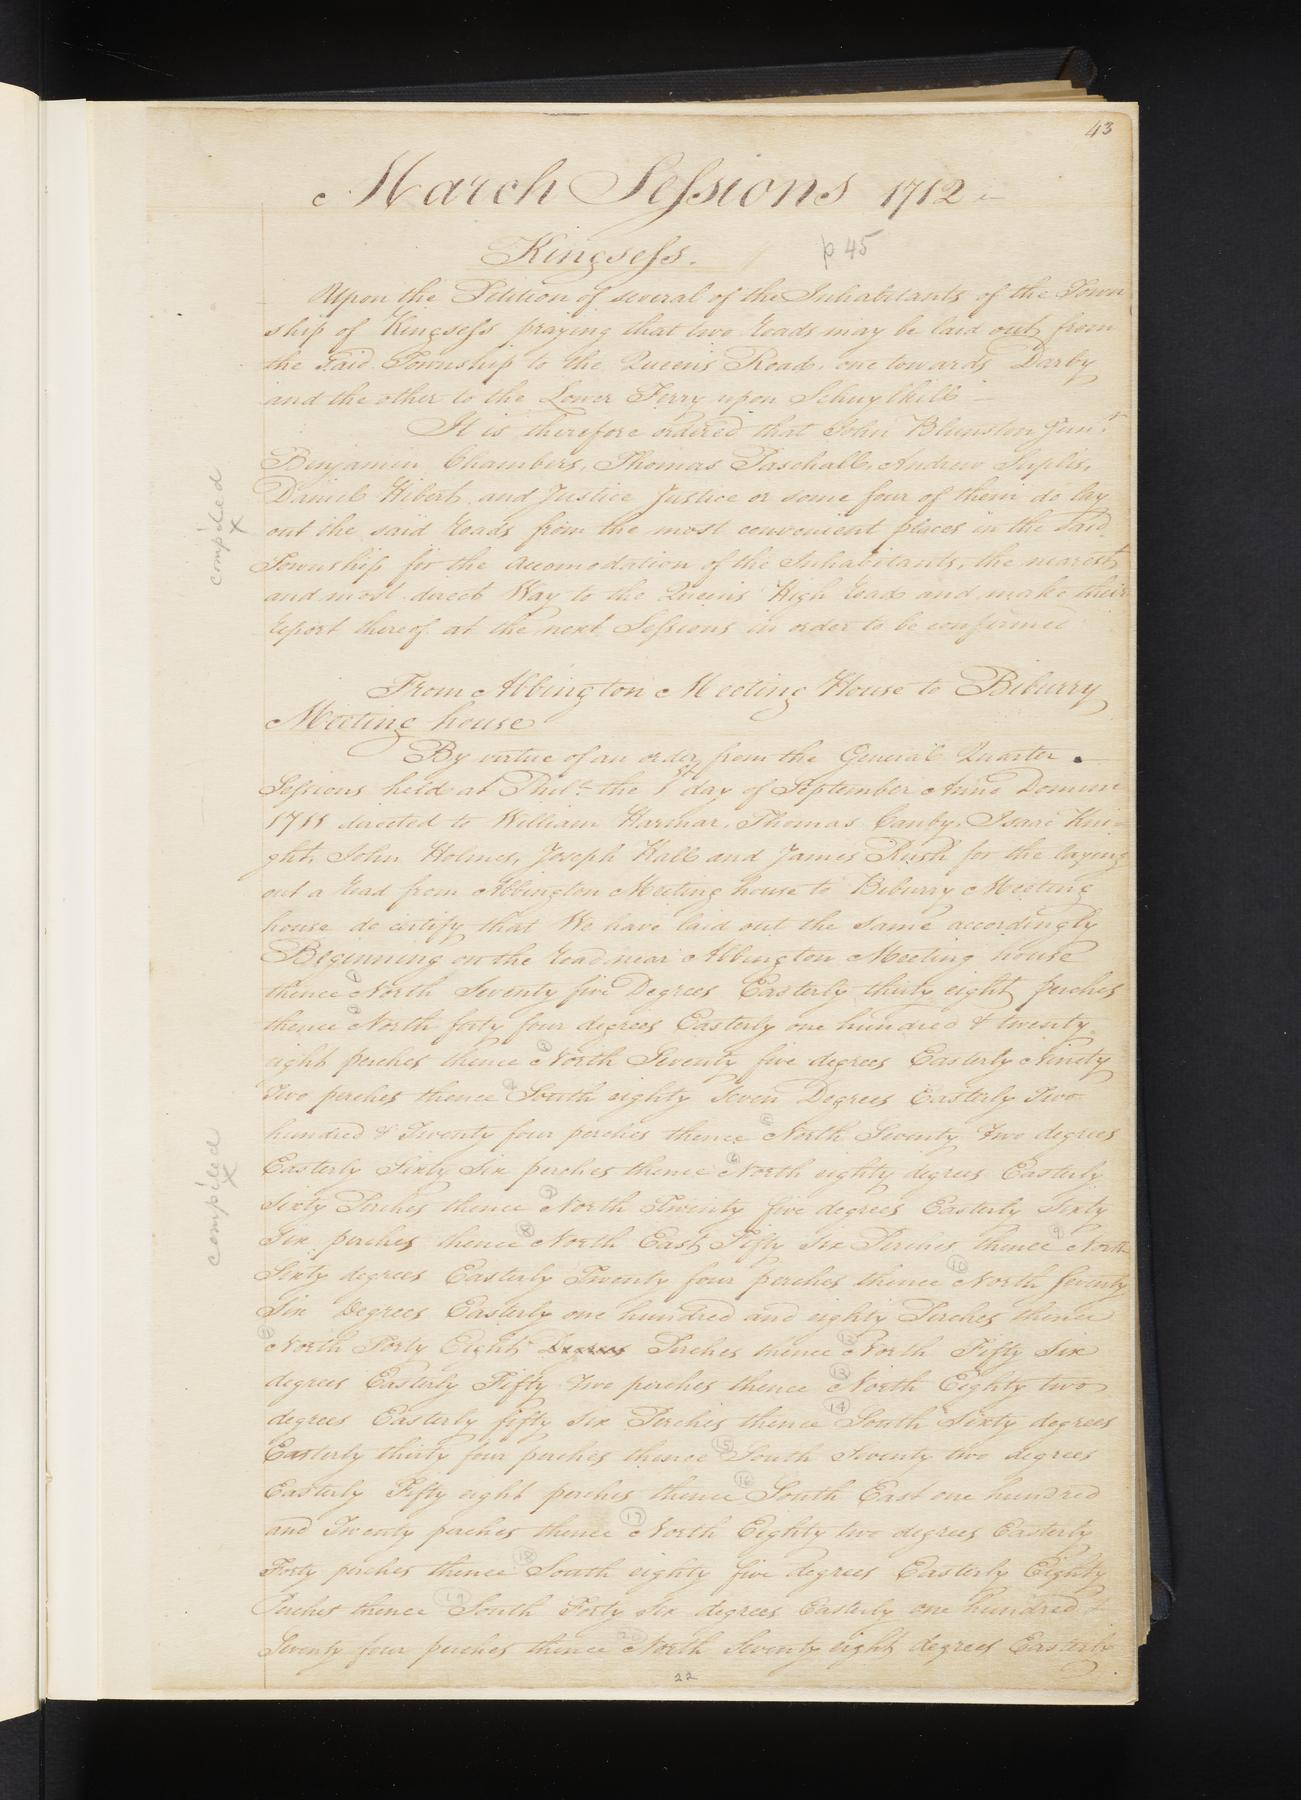 43
March Sessions 1712
Kingsess. p 45
Upon the Petition of several of the Inhabitants of the Town
ship of Kingsess praying that two Roads may be laid out from
the Said Township to the Queen's Road, one towards Darby
and the other to the Lower Ferry upon Schuylkill
It is therefore ordered that John Blunston Junr
Benjamin Chambers, Thomas Paschall, Andrew Suplis,
Daniel Hibert and Justice Justice or some four of them do lay
out the said Roads from the most convenient places in the Said
Township for the accomodation of the Inhabitants, the nearest
and most direct Way to the Queens High Road and make their
Report thereof at the next Sessions in order to be confirmed
compiled
x
From Abbington Meeting House to Biburry
Meeting house
By virtue of an order from the General Quarter
Sessions held at Phila the 1st day of September Anno Domini
1711 directed to William Harmar, Thomas Canby, Isaac Kni-
ght, John Holmes, Joseph Hall and James Rush for the laying
out a Road from Abbington Meeting house to Biburry Meeting
house do certify that We have laid out the same accordingly
Beginning on the Road near Abbington Meeting house
thence North Seventy five Degrees Easterly thirty eight perches
thence North forty four degrees Easterly one hundred & twenty
eight perches thence North Seventy five degrees Easterly Ninety
Two perches thence South eighty Seven Degrees Easterly Two
hundred & Twenty four perches thence North Seventy Two degrees
Easterly Sixty Six perches thence 6 North eighty degrees Easterly
Sixty Perches thence 7 North Twenty five degrees Easterly Sixty
Six perches thence 8 North East Fifty Six Perches thence 9 North
Sixty degrees Easterly Twenty four perches thence 10 North Seventy
Six Degrees Easterly one hundred and eighty Perches thence
North Forty Eight Degrees Perches thence 12 North Fifty Six
degrees Easterly Fifty Two perches thence 13 North Eighty two
degrees Easterly fifty six Perches thence 14 South Sixty degrees
Easterly thirty four perches thence 15 South Seventy two degrees
Easterly Fifty eight perches thence 16 South East one hundred
and Twenty perches thence 17 North Eighty two degrees Easterly
Forty perches thence 18 South eighty five degrees Easterly Eighty
Perches thence 19 South Forty Six degrees Easterly one hundred &
Seventy four perches thence 20 North Seventy eight degrees Easterly
compiled
x
22